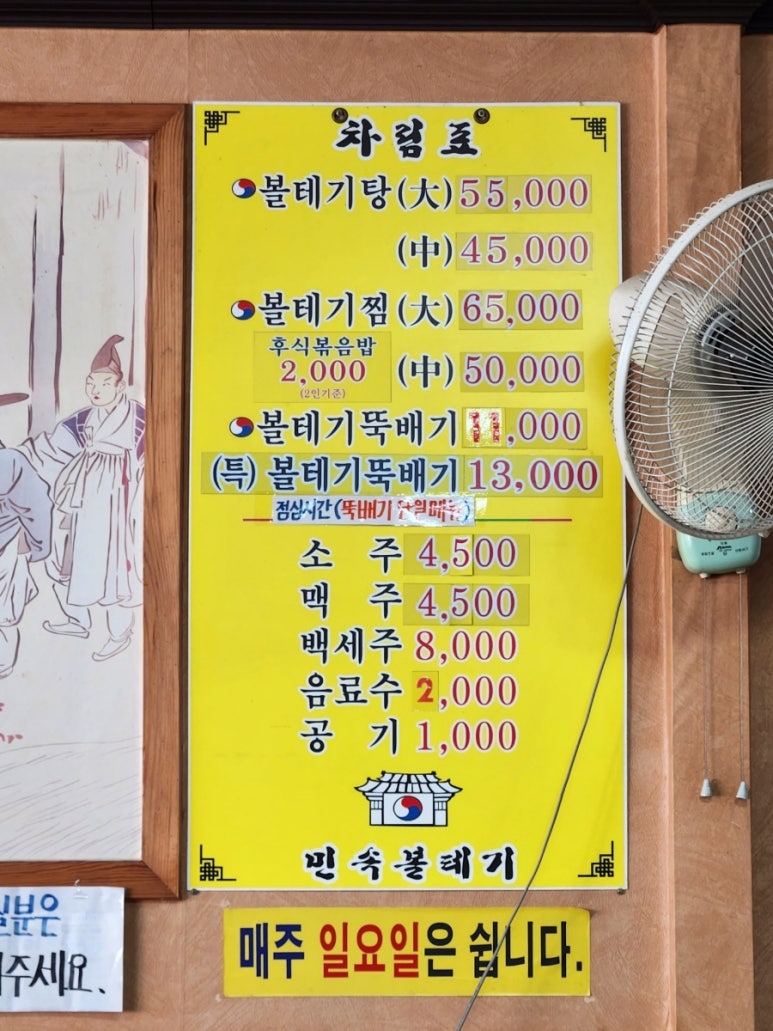 차림표
볼테기탕(大) 55,000
(中) 45,000
볼테기찜(大) 65,000
후식볶음밥
2,000
(2인기준)
(中) 50,000
볼테기뚝배기 11,000
(특) 볼테기뚝배기 13,000
점심시간(뚝배기 단일메뉴)
소 주 4,500
맥 주 4,500
백세주 8,000
음료수 2,000
공 기 1,000
민속볼테기
매주 일요일은 쉽니다.
분은
주세요.